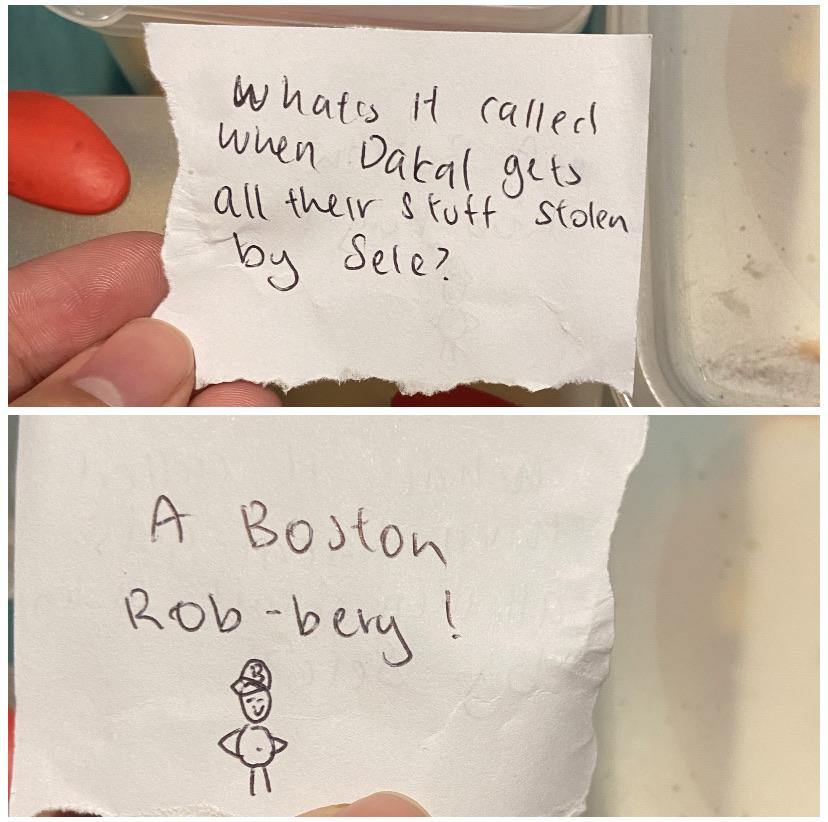 What's it called
when Dakal gets
all their stuff stolen
by Sele?
A Boston
Rob-bery!
B